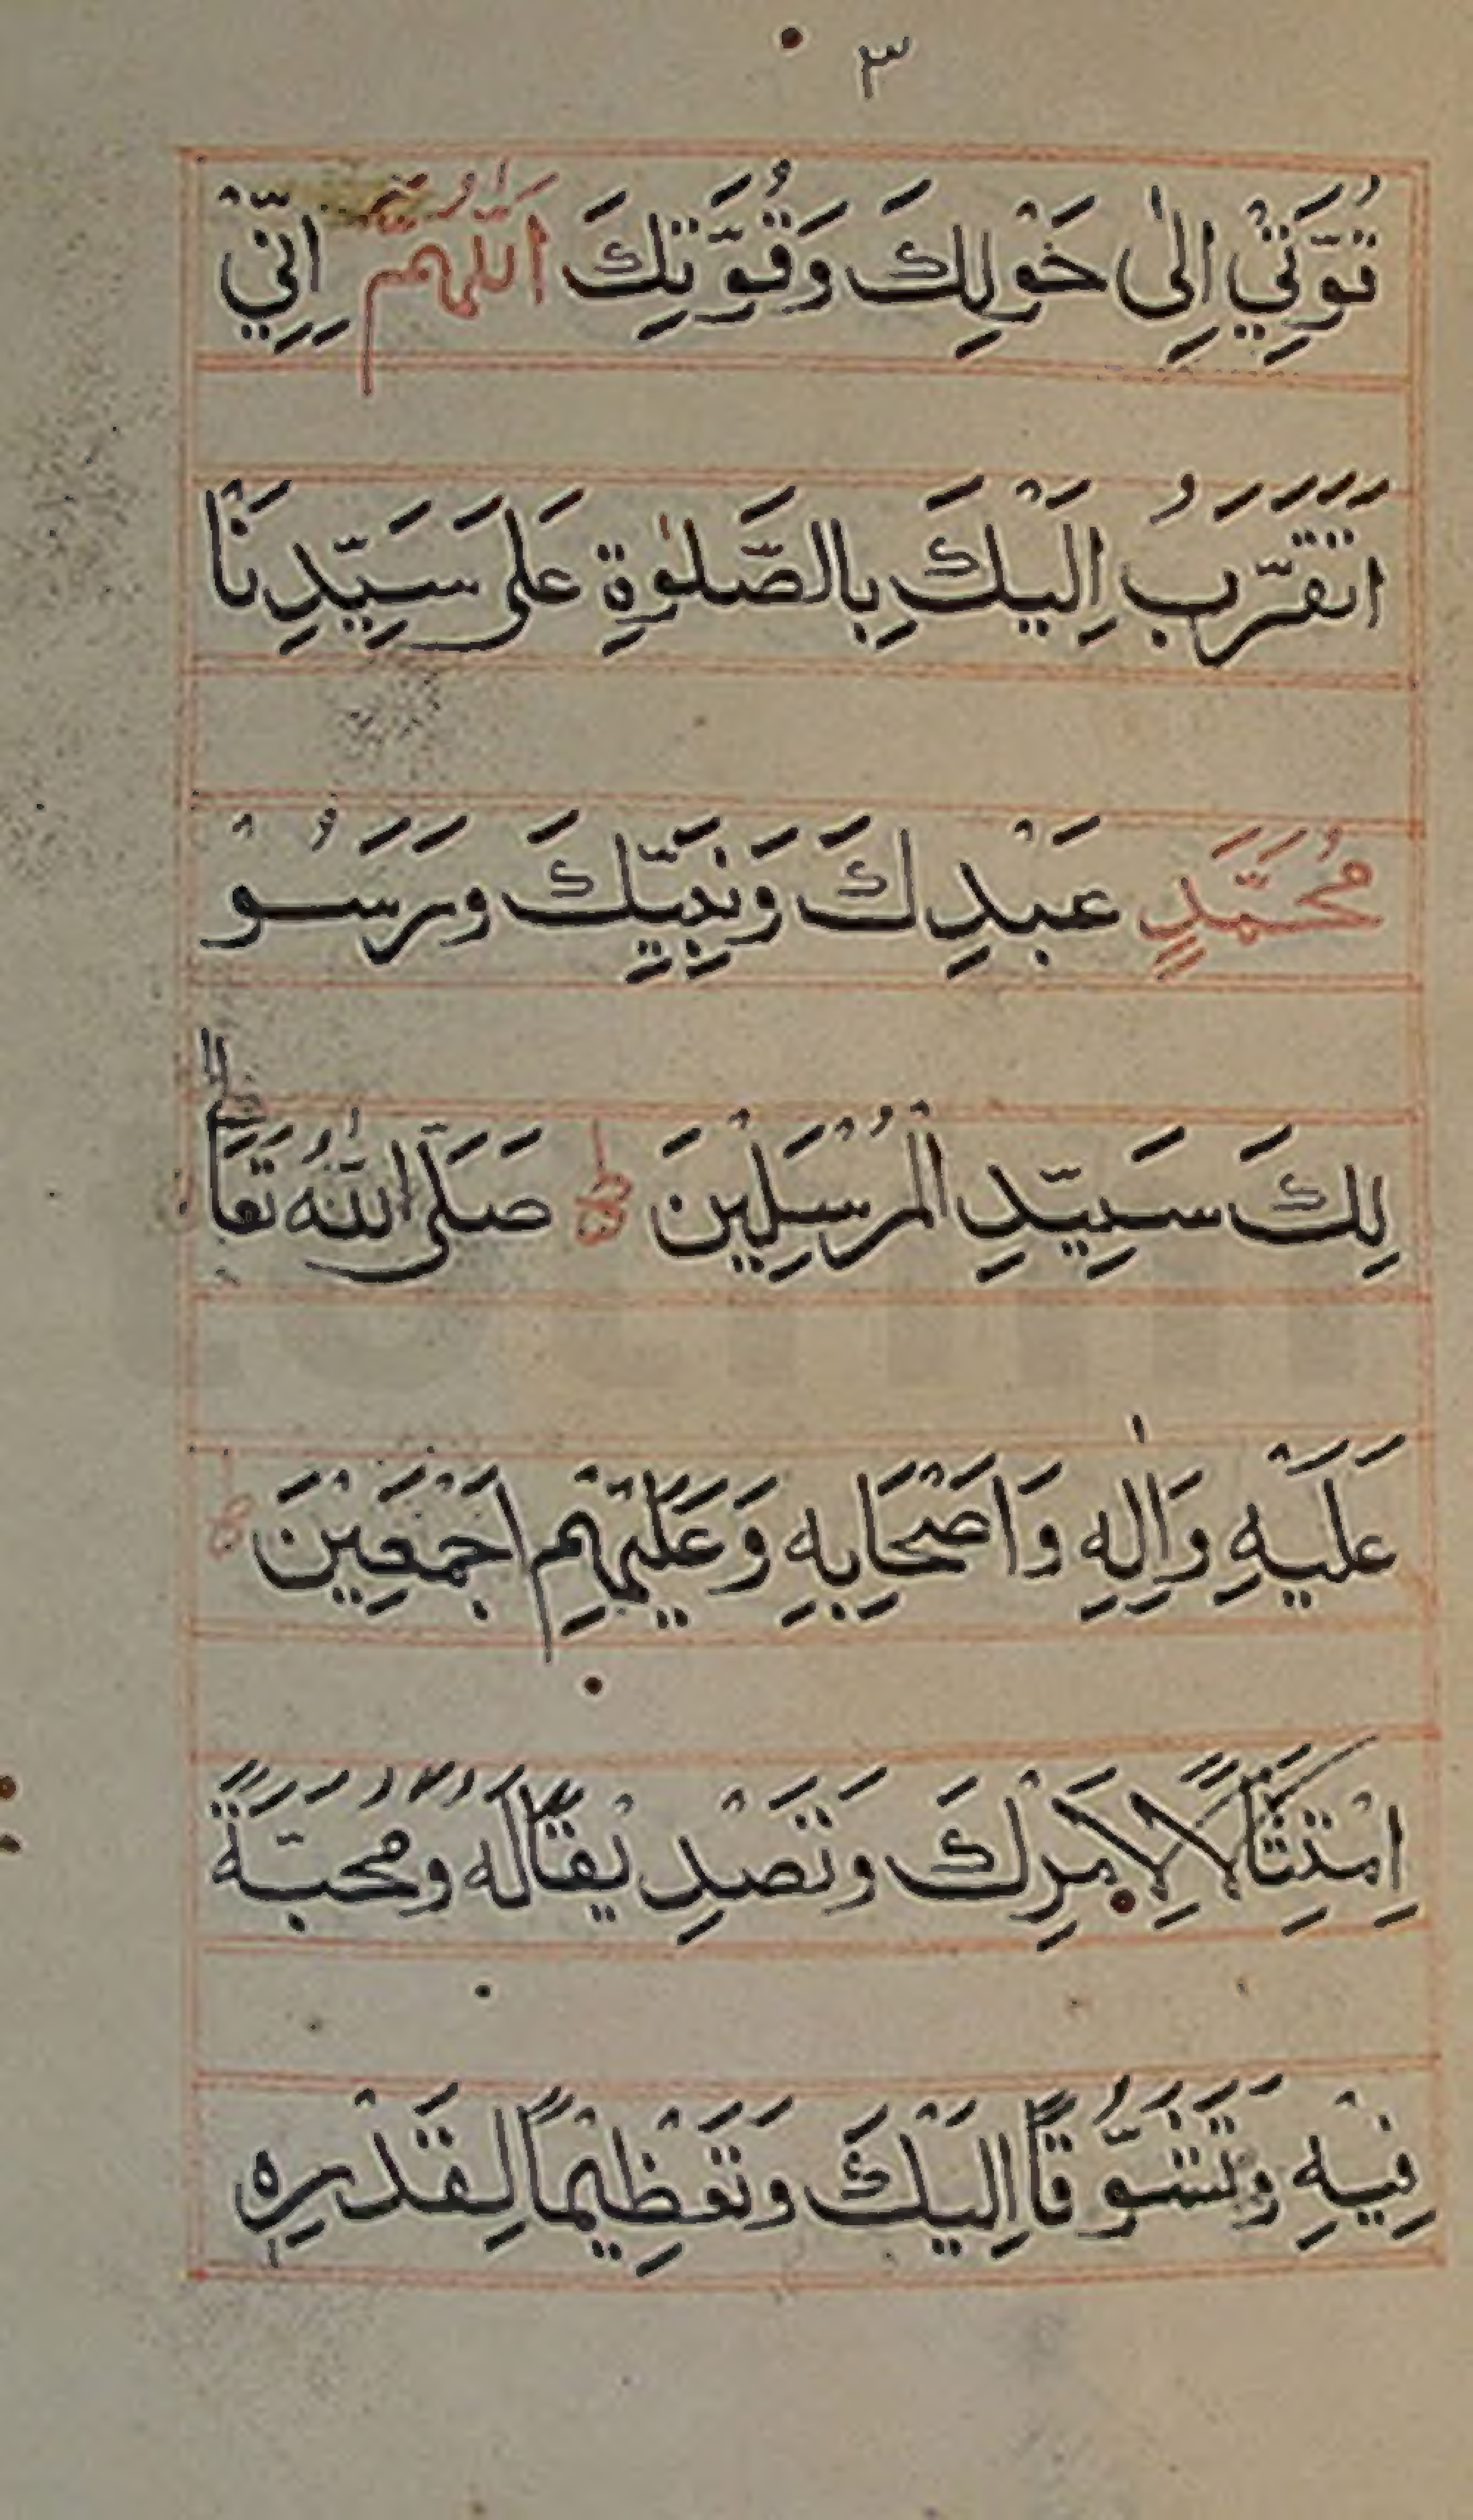 ٣
قُوَّتِيْ اِلٰى حَوْلِكَ وَقُوَّتِكَ اَللّٰهُمَّ اِنِّيْ
اَتَقَرَّبُ اِلَيْكَ بِالصَّلٰوةِ عَلَى سَيِّدِنَا
مُحَمَّدٍ عَبْدِكَ وَنَبِيِّكَ وَرَسُوْ
لِكَ سَيِّدِ الْمُرْسَلِيْنَ صَلَّى اللّٰهُ تَعَالٰى
عَلَيْهِ وَاٰلِهِ وَاَصْحَابِهِ وَعَلَيْهِمْ اَجْمَعِيْنَ
اِمْتِثَالًا لِاَمْرِكَ وَتَصْدِيْقًا لَهُ وَمُحَبَّةً
فِيْهِ وَتَشَوُّقًا اِلَيْكَ وَتَعْظِيْمًا لِقَدْرِهِ